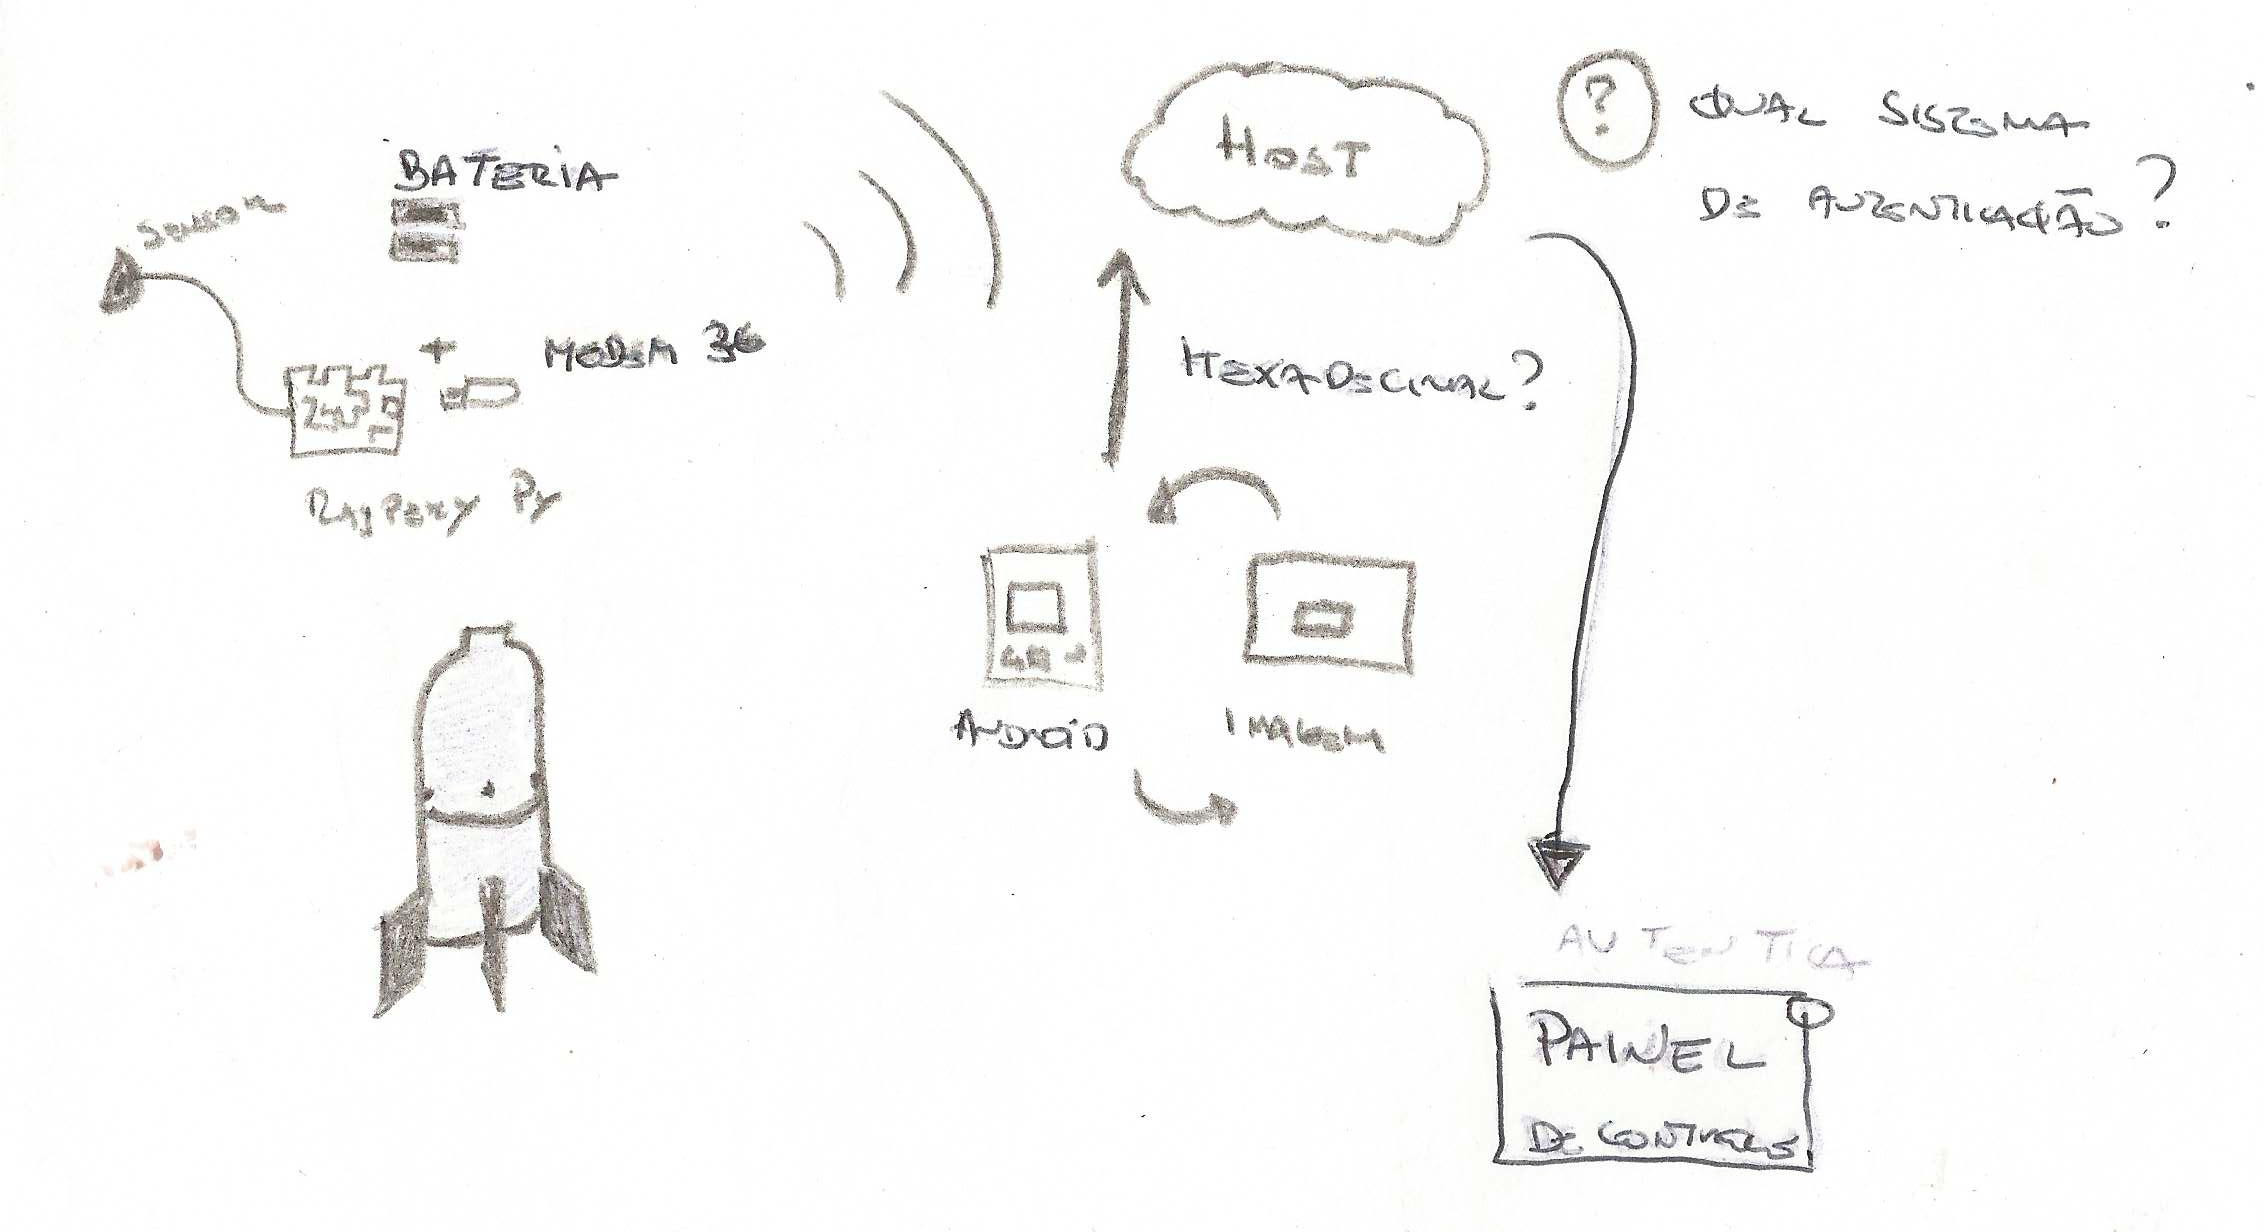 SENSOR
BATERIA
+
MODEM 3G
RASPERY PY
HOST
?
QUAL SISTEMA
DE AUTENTICAÇÃO?
HEXADECIMAL?
ANDROID
IMAGEM
AUTENTICA
PAINEL
DE CONTROLE